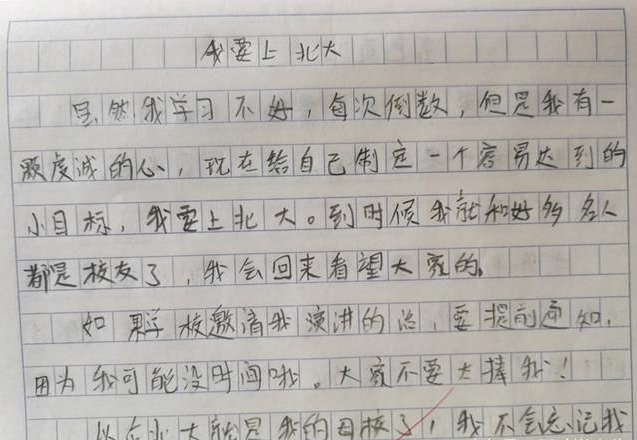 我要上北大
虽然我学习不好，每次倒数，但是我有一
颗虔诚的心、，现在给自己制定一个容易达到的
小目标，我要上北大。到时候我就和好多名人
都是校友了，我会回来看望大家的。
如果学校邀请我演讲的话，要提前通知，
因为我可能没时间哦。大家不要太捧我！
以后北大就是我的母校了，我不会忘记我